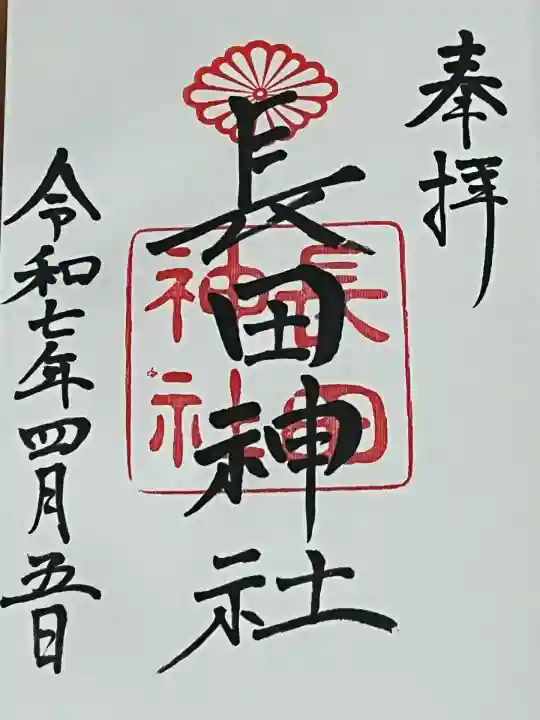 奉拝
長田神社
長田
神社
令和七年四月五日